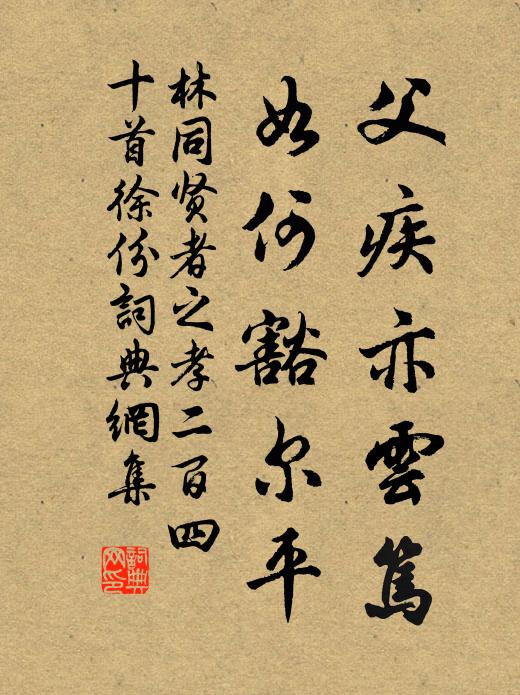 父疾亦雲篤
如何豁尔平
林同贤者之孝二百四
十首徐份詞典網集
詞典
网印